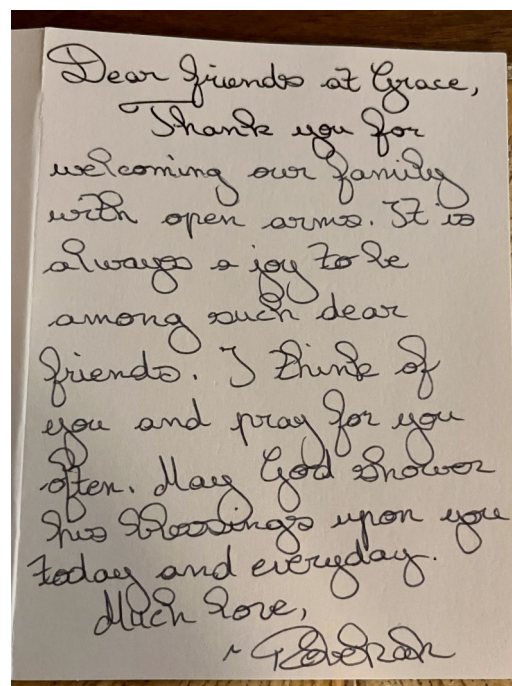 Dear friends at Grace,
Thank you for
welcoming our family
with open arms. It is
always a joy to be
among such dear
friends. I think of
you and pray for you
often. May God shower
His blessings upon you
today and everyday.
Much love,
~ Rebekah